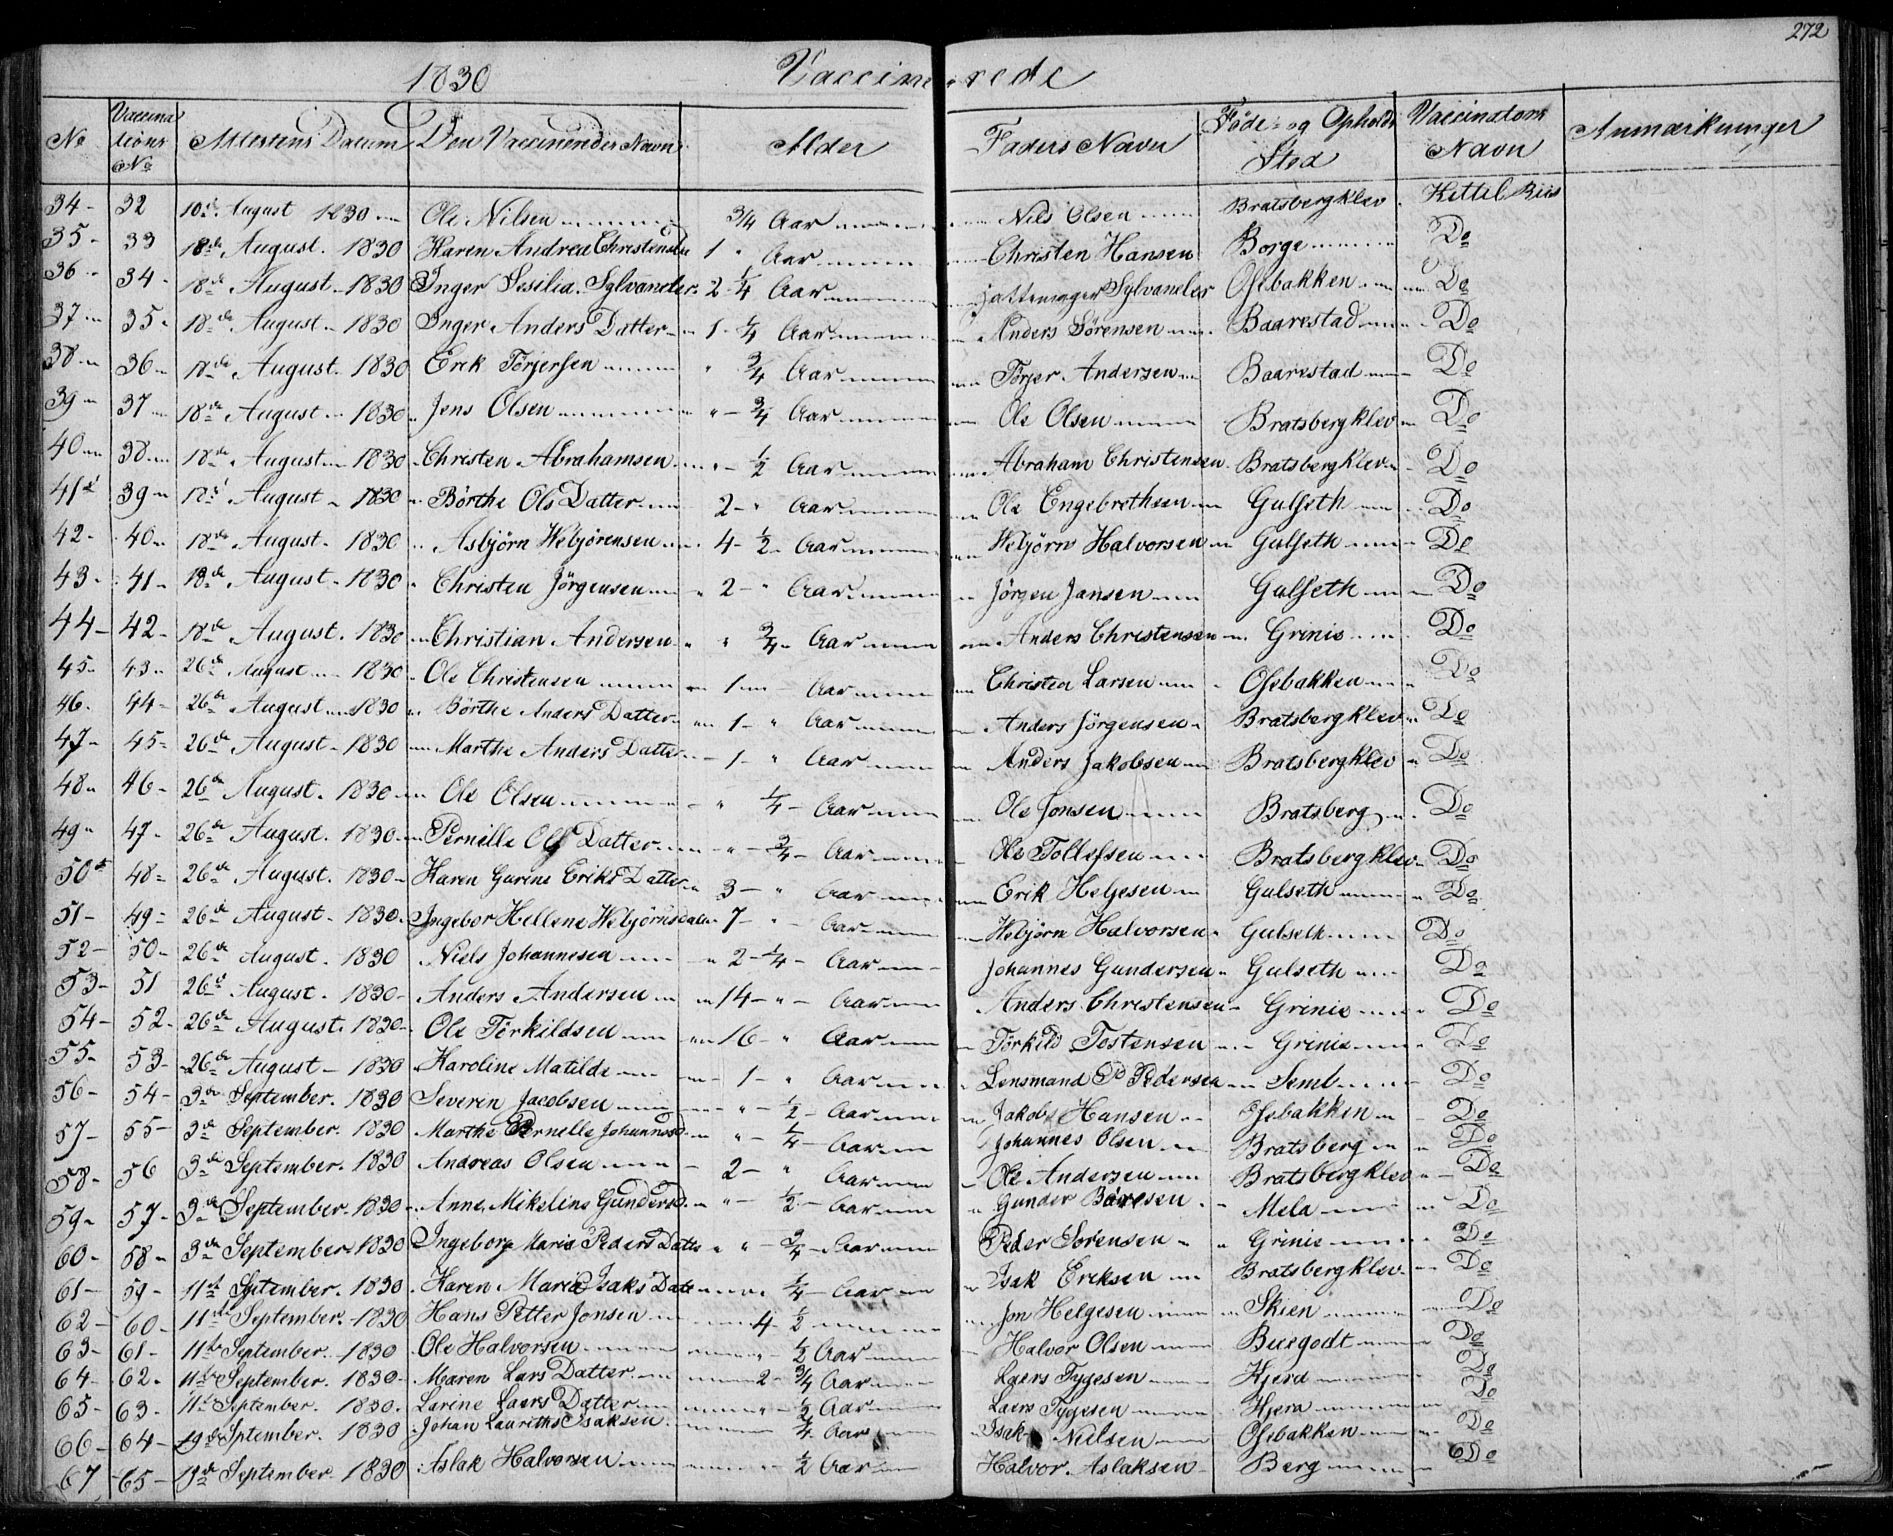 272
1830 Vaccinerede
No | Vaccinationes No | Attestens Datum | Den Vaccineredes Navn | Alder | Faders Navn | Føde- og Opholds Sted | Vaccinators Navn | Anmærkninger
34 | 32 | 10de August 1830 | Ole Nilsen | 3/4 Aar | Nils Olsen | Bratsbergklev | Kittil Riis
35 | 33 | 18de August 1830 | Karen Andrea Christensda | 1 " Aar | Christen Hansen | Borge | Do
36 | 34 | 18de August 1830 | Inger Sesilia Sylvander | 2 1/4 Aar | Sylvander | Osebakken | Do
37 | 35 | 18de August 1830 | Inger Anders Datter | 1 1/4 Aar | Anders Sørensen | Baarestad | Do
38 | 36 | 18de August 1830 | Erik Törjersen | " 3/4 Aar | Törjer Andersen | Baarestad | Do
39 | 37 | 18de August 1830 | Jens Olsen | " 3/4 Aar | Ole Olsen | Bratsbergklev | Do
40 | 38 | 18de August 1830 | Christen Abrahamsen | " 1/2 Aar | Abraham Christensen | Bratsbergklev | Do
41 | 39 | 18de August 1830 | Börthe Ols Datter | 2 " Aar | Ole Engebrethsen | Gulseth | Do
42 | 40 | 18de August 1830 | Asbjörn Webjörensen | 4 1/2 Aar | Webjörn Halvorsen | Gulseth | Do
43 | 41 | 18de August 1830 | Christen Jörgensen | 2 " Aar | Jörgen Jansen | Gulseth | Do
44 | 42 | 18de August 1830 | Christian Andersen | " 3/4 Aar | Anders Christensen | Grinie | Do
45 | 43 | 26de August 1830 | Ole Christensen | 1 Aar | Christen Larsen | Osebakken | Do
46 | 44 | 26de August 1830 | Börthe Anders Datter | 1 " Aar | Anders Jörgensen | Bratsbergklev | Do
47 | 45 | 26de August 1830 | Marthe Anders Datter | 1 " Aar | Anders Jakobsen | Bratsbergklev | Do
48 | 46 | 26de August 1830 | Ole Olsen | " 1/4 Aar | Ole Jonsen | Bratsberg | Do
49 | 47 | 26de August 1830 | Pernille Ols Datter | " 3/4 Aar | Ole Tollefsen | Bratsbergklev | Do
50 | 48 | 26de August 1830 | Karen Gurine Eriks Datter | 3 " Aar | Erik Helgesen | Gulseth | Do
51 | 49 | 26de August 1830 | Ingebor Hellene Webjörnsdater | 7 " Aar | Webjörn Halvorsen | Gulseth | Do
52 | 50 | 26de August 1830 | Niels Johannesen | 2 1/4 Aar | Johannes Gundersen | Gulseth | Do
53 | 51 | 26de August 1830 | Anders Andersen | 14 " Aar | Anders Christensen | Grinie | Do
54 | 52 | 26de August 1830 | Ole Törkildsen | 16 " Aar | Törkild Tostensen | Grinie | Do
55 | 53 | 26de August 1830 | Karoline Matilde | 1 " Aar | Lensmand P Pedersen | Semb | Do
56 | 54 | 3de September 1830 | Severin Jacobsen | " 1/2 Aar | Jakob Hansen | Osebakken | Do
57 | 55 | 3de September 1830 | Marthe Pernelle Johannesd | " 1/4 Aar | Johannes Olsen | Bratsberg | Do
58 | 56 | 3de September 1830 | Andreas Olsen | 2 " Aar | Ole Andersen | Bratsbergklev | Do
59 | 57 | 3de September 1830 | Anne Mikeline Gundersd | " 1/2 Aar | Gunder | Mela | Do
60 | 58 | 3de September 1830 | Ingeborg Marie Peders Datter | " 3/4 Aar | Peder Sörensen | Grinie | Do
61 | 59 | 11te September 1830 | Karen Maria Isaks Date | 1/4 Aar | Isak Eriksen | Bratsbergklev | Do
62 | 60 | 11te September 1830 | Hans Petter Jonsen | 4 1/2 | Jon Helgesen | Skien | Do
63 | 61 | 11te September 1830 | Ole Halvorsen | 1/2 Aar | Halvor Olsen | Burgodt | Do
64 | 62 | 11te September 1830 | Maren Lars Datter | 2 3/4 Aar | Laers Tygesen | Hjera | Do
65 | 63 | 11te September 1830 | Larine Laers Datter | " 1/2 Aar | Laers Tygesen | Hjera | Do
66 | 64 | 19de September 1830 | Johan Laurithz Isaksen | 1/4 Aar | Isak Nielsen | Osebakken | Do
67 | 65 | 19de September 1830 | Aslak Halvorsen | 1/2 Aar | Halvor Aslaksen | Berg | Do